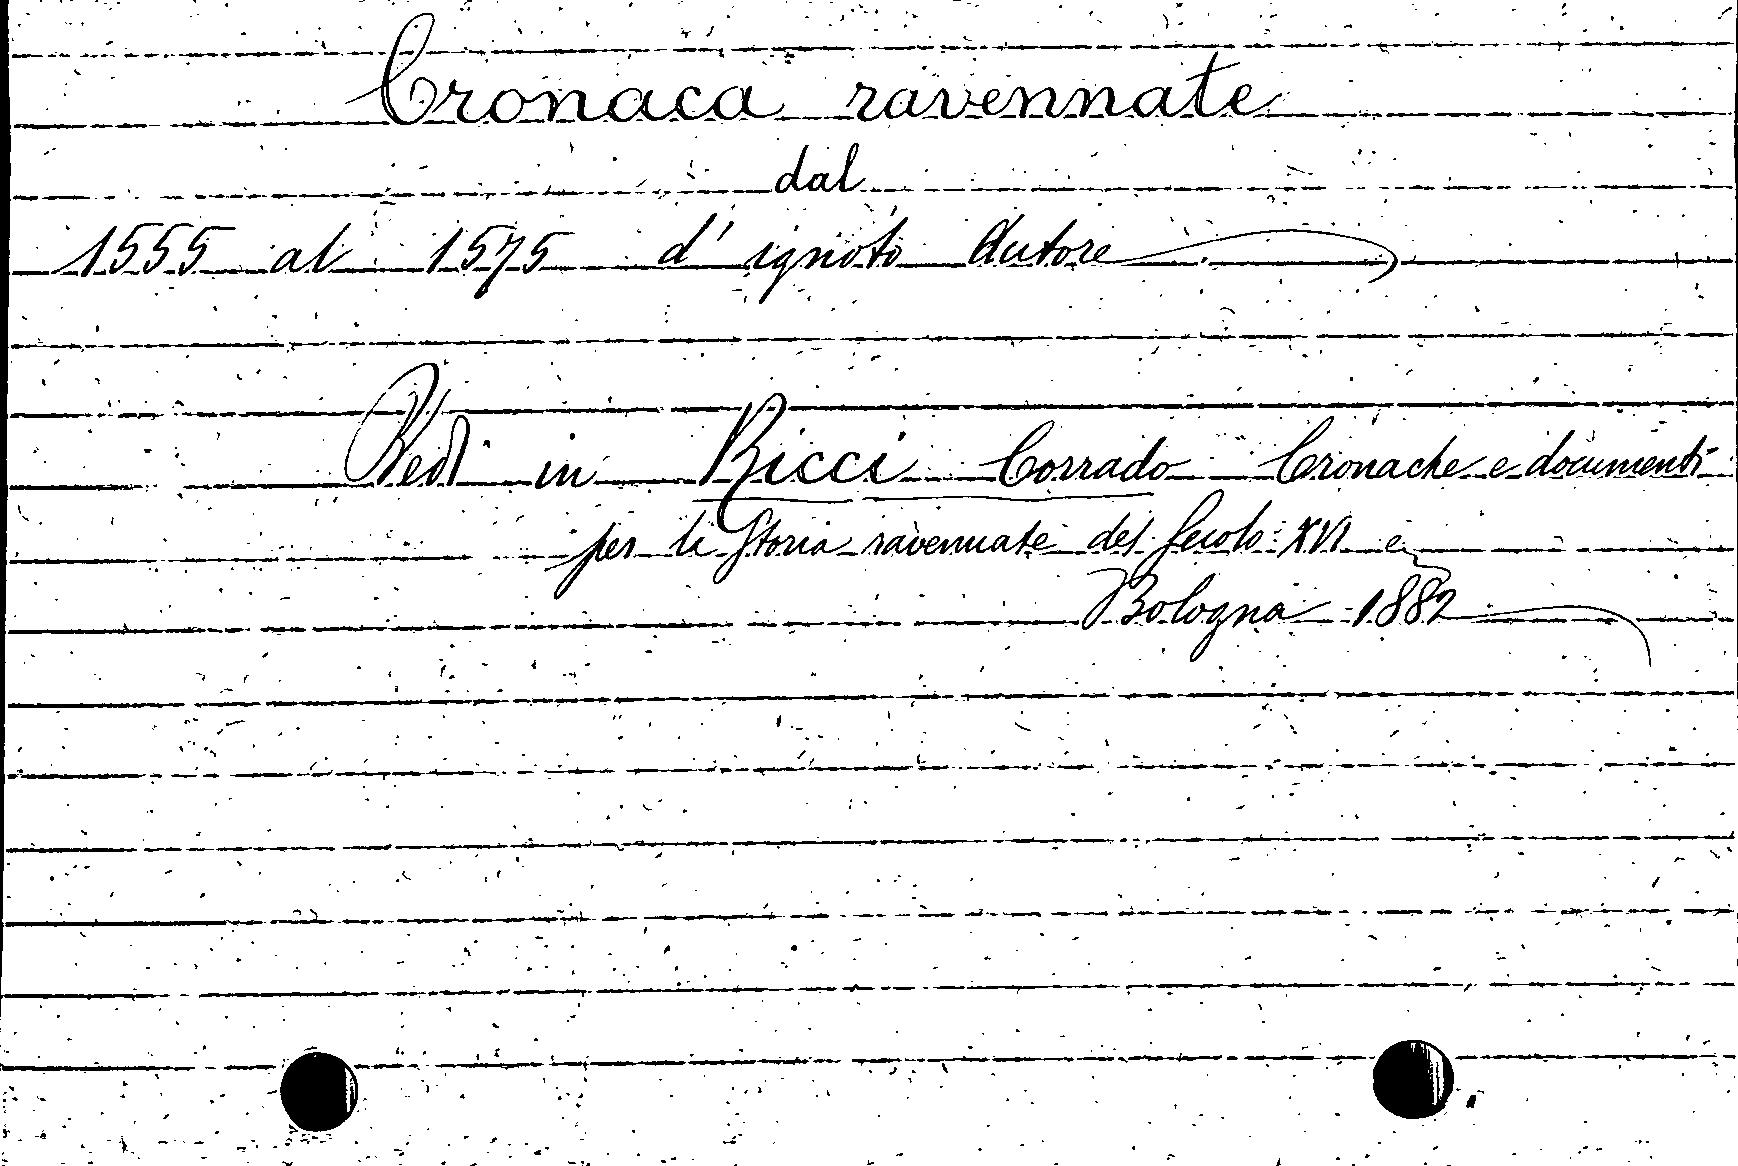 Cronaca ravennate
dal
1555 al 1575 d'ignoto Autore
Vedi in Ricci Corrado Cronache e documenti
per la Storia ravennate del Secolo XVI e
Bologna 1882